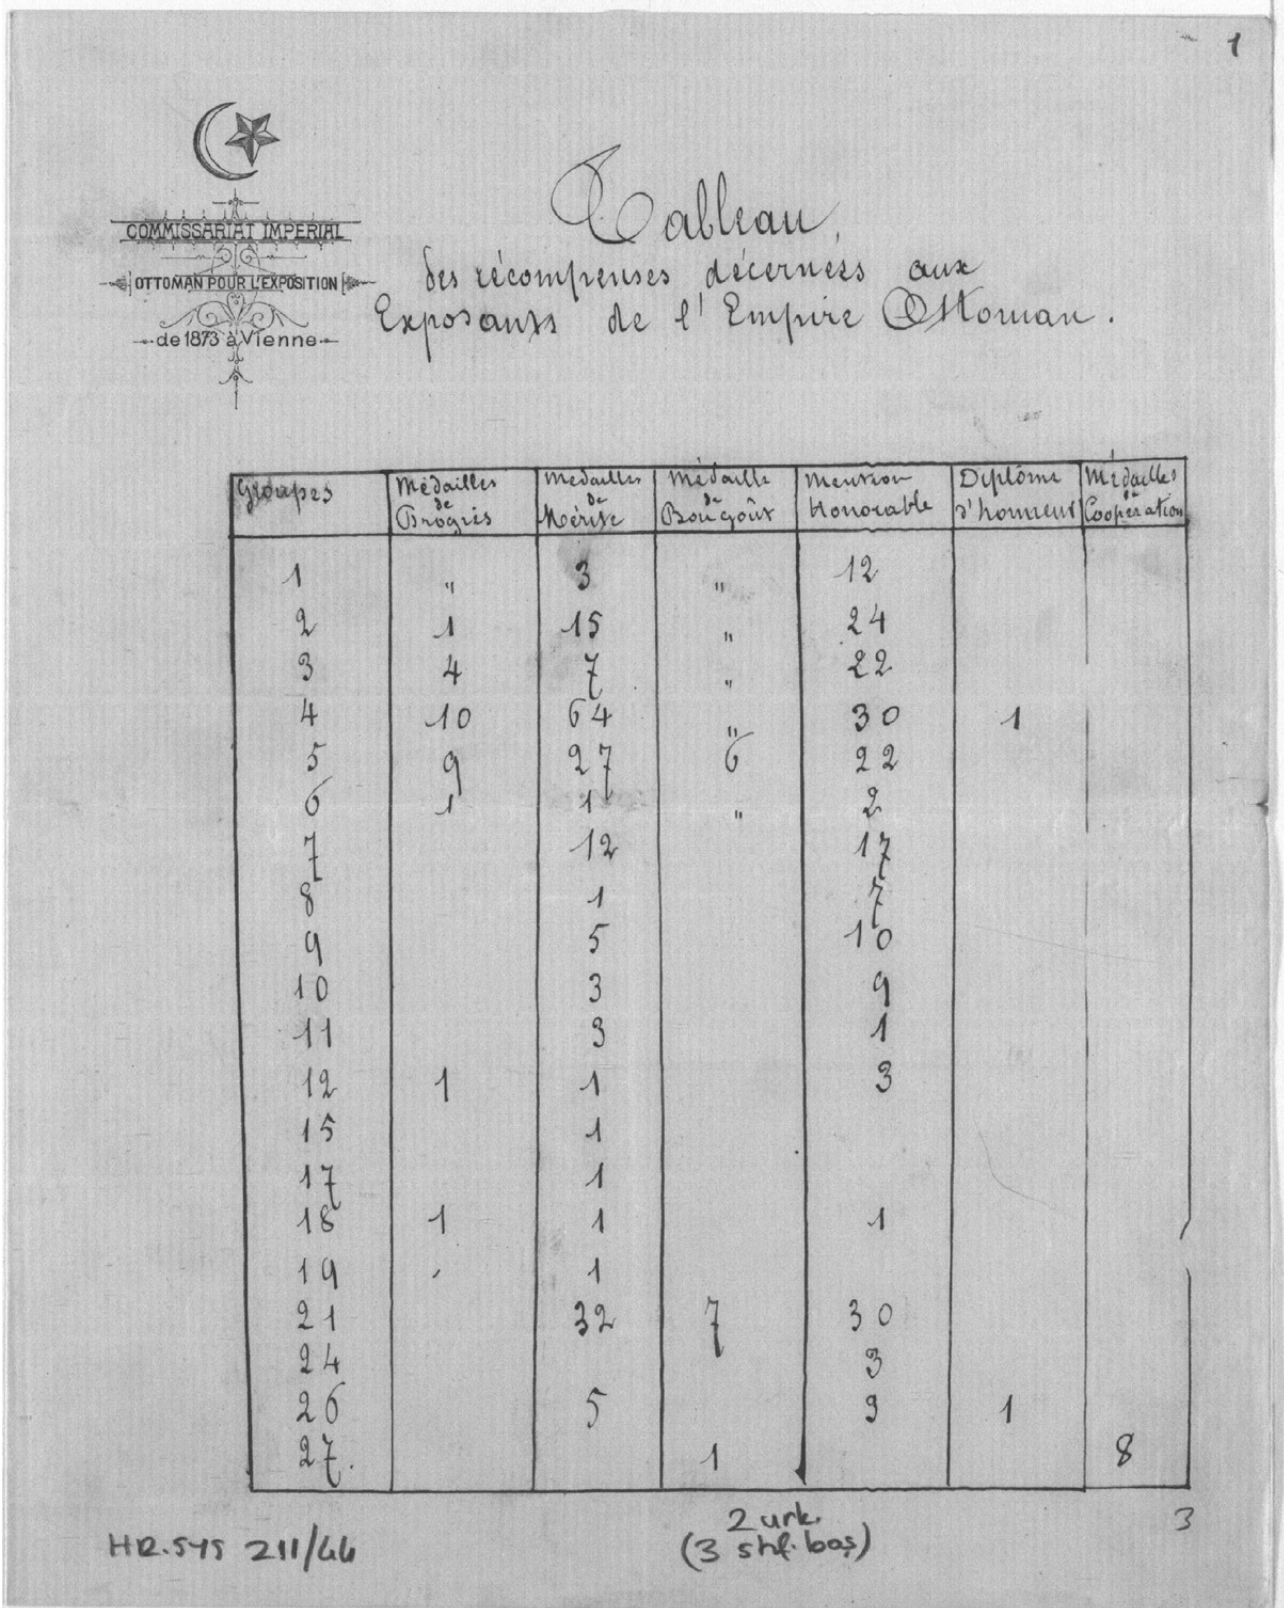 1
COMMISSARIAT IMPERIAL
OTTOMAN POUR L'EXPOSITION
de 1873 à Vienne
Tableau,
des récompenses décernées aux
Exposants de l'Empire Ottoman.
Groupes | Médailles de Progrès | Médailles de Mérite | Médaille de Bon goût | Mention Honorable | Diplôme d'honneur | Médailles de Coopération
1 | " | 3 | " | 12
2 | 1 | 15 | " | 24
3 | 4 | 7 | " | 22
4 | 10 | 64 | " | 30 | 1
5 | 9 | 27 | 6 | 22
6 | 1 | 1 | " | 2
7 | | 12 | | 17
8 | | 1 | | 7
9 | | 5 | | 10
10 | | 3 | | 9
11 | | 3 | | 1
12 | 1 | 1 | | 3
15 | | 1
17 | | 1
18 | 1 | 1 | | 1
19 | | 1
21 | | 32 | 7 | 30
24 | | | | 3
26 | | 5 | | 3 | 1
27. | | | 1 | | | 8
HR.SYS 211/44
2 urk.
(3 shf. boş)
3